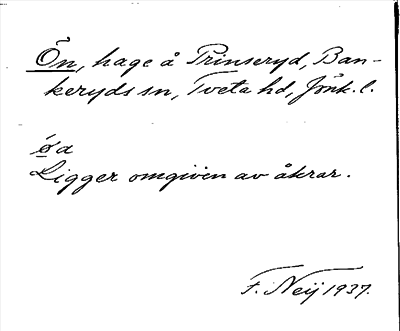 Ön, hage å Prinseryd, Ban-
keryds sn, Tveta hd, Jönk. l.
ö̱a
Ligger omgiven av åkrar.
F. Neij 1937.